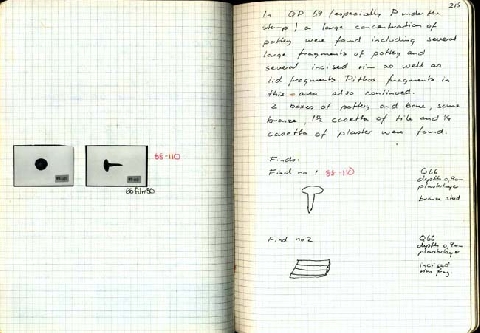 88-110
88Film80
215
In QP 59 (especially P under the
stamp) a large concentration of
pottery were found including several
large fragments of pottery and
several incised rim as well as
lid fragments Pithos fragments in
this area also continued.
2 boxes of pottery and bone, some
bronze, 1½ canetta of tile and ½
canetta of plaster were found.
Finds:
Find no 1 88-110
Q66
depth 0,9m
plow layer
bronze stud
Find no 2
Q66
plow layer
incised
rim frag